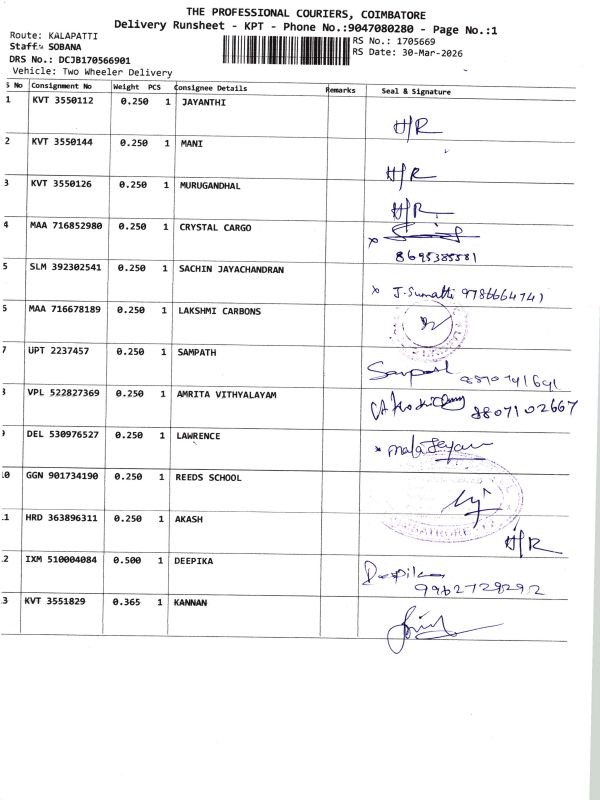 THE PROFESSIONAL COURIERS, COIMBATORE
Delivery Runsheet - KPT - Phone No.:9047080280 - Page No.:1
Route: KALAPATTI RS No.: 1705669
Staff: SOBANA RS Date: 30-Mar-2026
DRS No.: DCJB170566901
Vehicle: Two Wheeler Delivery
S No Consignment No Weight PCS Consignee Details Remarks Seal & Signature
1 KVT 3550112 0.250 1 JAYANTHI H/R
2 KVT 3550144 0.250 1 MANI H/R
3 KVT 3550126 0.250 1 MURUGANDHAL H/R
4 MAA 716852980 0.250 1 CRYSTAL CARGO
8695385581
5 SLM 392302541 0.250 1 SACHIN JAYACHANDRAN
x J. Sumathi 9786664741
6 MAA 716678189 0.250 1 LAKSHMI CARBONS
7 UPT 2237457 0.250 1 SAMPATH
Sampath 8870741691
8 VPL 522827369 0.250 1 AMRITA VITHYALAYAM
8807102667
9 DEL 530976527 0.250 1 LAWRENCE
10 GGN 901734190 0.250 1 REEDS SCHOOL
11 HRD 363896311 0.250 1 AKASH H/R
12 IXM 510004084 0.500 1 DEEPIKA Deepika
9962728292
13 KVT 3551829 0.365 1 KANNAN